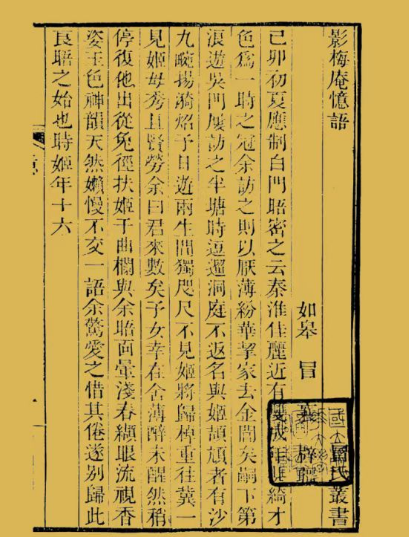 影梅庵憶語
氏叢書
如臯 冒
己卯初夏應制白門晤密之云秦淮佳麗近有雙成年甚綺才
色爲一時之冠余訪之則以厭薄紛華挈家去金閶矣嗣下第
浪遊吳門屢訪之半塘時逗遛洞庭不返名與姬頡頏者有沙
九畹楊漪炤予日遊兩生間獨咫尺不見姬將歸棹重往冀一
見姬母秀且賢勞余曰君來數矣予女幸在舍薄醉未醒然稍
停復他出從兔徑扶姬于曲欄與余晤面暈淺春纈眼流視香
姿玉色神韻天然嬾慢不交一語余驚愛之惜其倦遂別歸此
良晤之始也時姬年十六